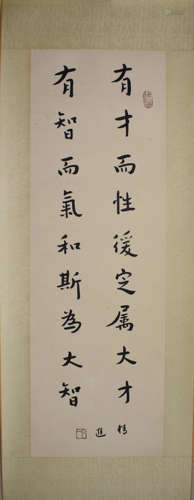 有才而性緩定属大才
有智而氣和斯為大智